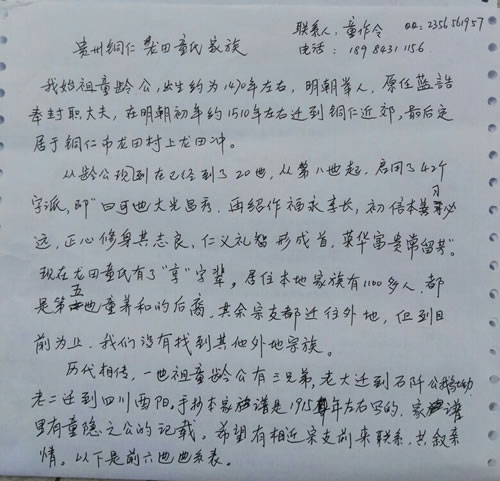 贵州铜仁龙田童氏家族
联系人:童作令 QQ:2356561957
电话:189 8431 1156
我始祖童龄公,出生约为1470年左右,明朝举人,原任蓝诰
奉封职大夫,在明朝初年约1510年左右迁到铜仁近郊,最后定
居于铜仁市龙田村上龙田冲。
从龄公现到在已经到了20世,从第八世起,启用了42个
字派,即"曰可世大光昌秀,再绍作福永享长,初倍本善习必
远,正心修身其志良,仁义礼智形成首,英华富贵常留芳"。
现在龙田童氏有了"享"字辈。居住本地家族有1100多人,都
是第五世童养和的后裔,其余宗支都迁往外地,但到目
前为止,我们没有找到其他外地宗族。
历代相传,一世祖童龄公有三兄弟,老大迁到石阡公鹅坳,
老二迁到四川酉阳。手抄本家谱是1915年左右写的,家谱
里有童隐之公的记载。希望有相近宗支前来联系,共叙亲
情。以下是前六世世系表。